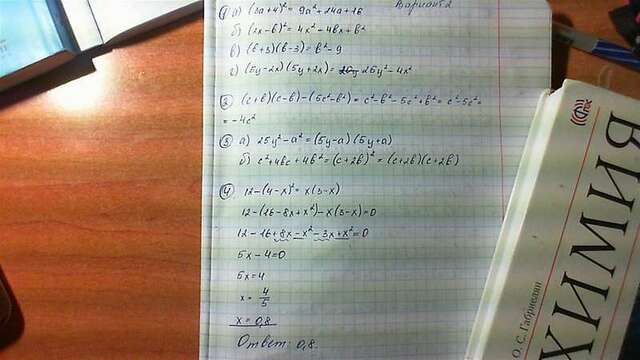 Вариант 2
① а) (3a+4)² = 9a²+24a+16
б) (2x-b)² = 4x²-4bx+b²
в) (b+3)(b-3) = b²-9
г) (5y-2x)(5y+2x) = 25y²-4x²
② (c+b)(c-b)-(5c²-b²) = c²-b²-5c²+b² = c²-5c² =
= -4c²
③ а) 25y²-a² = (5y-a)(5y+a)
б) c²+4bc+4b² = (c+2b)² = (c+2b)(c+2b)
④ 12-(4-x)² = x(3-x)
12-(16-8x+x²)-x(3-x)=0
12-16+8x-x²-3x+x²=0
5x-4=0
5x=4
x = 4/5
x = 0,8
Ответ: 0,8
О. С. Габриелян
ХИМИЯ